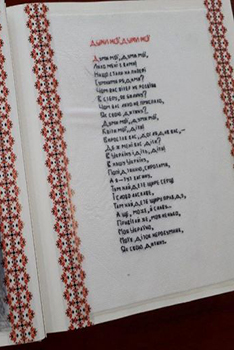 ДУМИ МОЇ, ДУМИ МОЇ
Думи мої, думи мої,
Лихо мені з вами!
Нащо стали на папері
Сумними рядами?
Чом вас вітер не розвіяв
В степу, як билину?
Чом вас лихо не приспало,
Як свою дитину?
Думи мої, думи мої,
Квіти мої, діти!
Виростав вас, доглядав вас,—
Де ж мені вас діти?
В Україну ідіть, діти!
В нашу Україну,
Попідтинню, сиротами,
А я — тут загину.
Там найдете щире серце
І слово ласкаве,
Там найдете щиру правду,
А ще, може, й славу...
Привітай же, моя ненько,
Моя Україно,
Моїх діток нерозумних,
Як свою дитину.